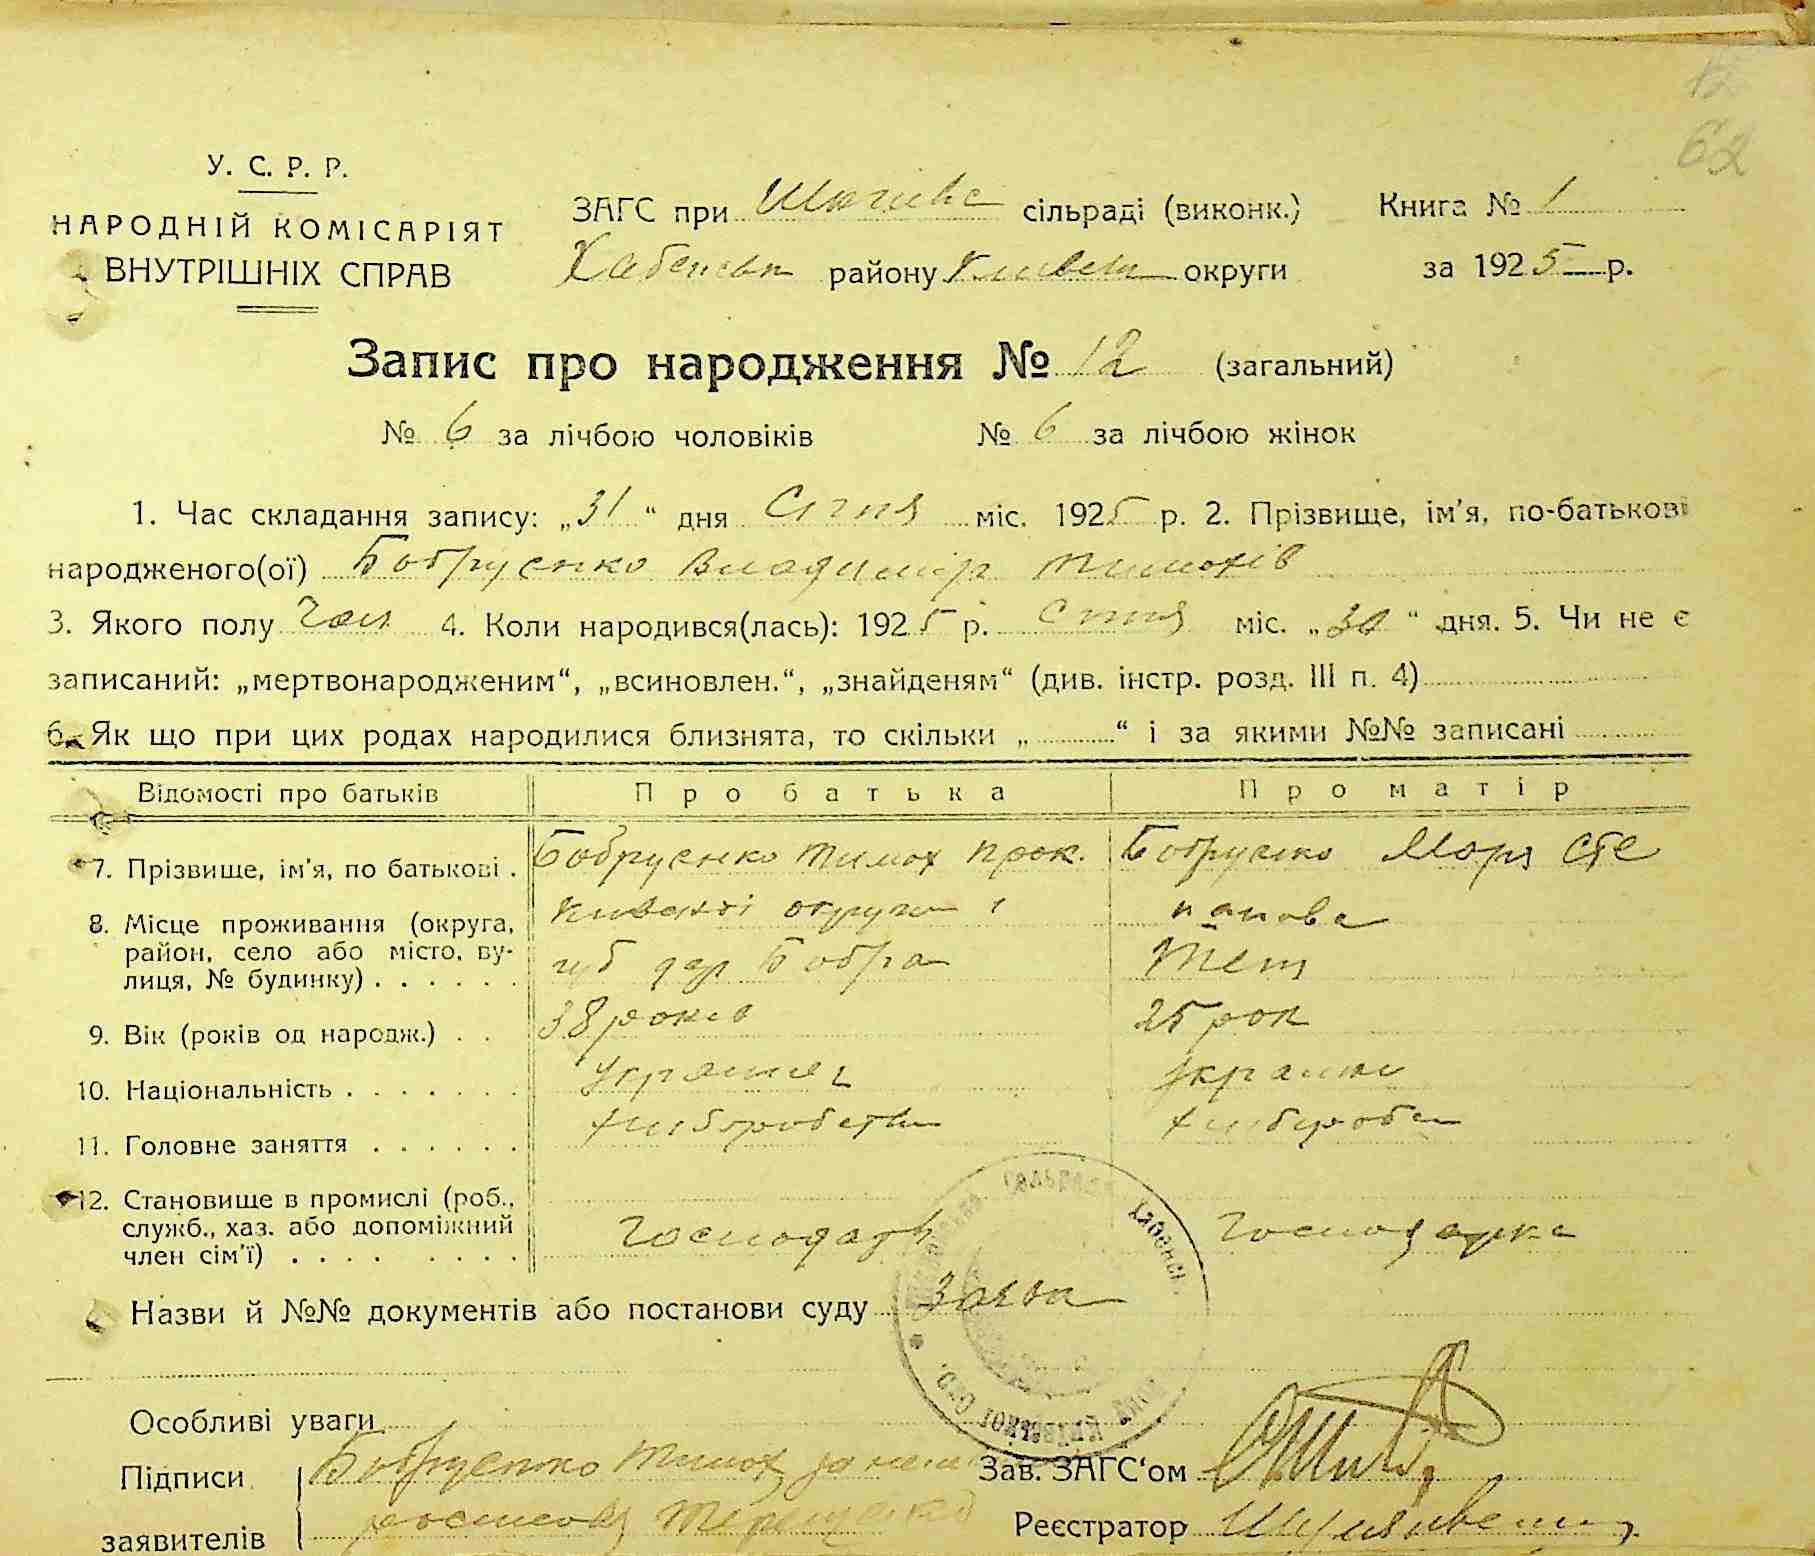 62
У. С. Р. Р.
НАРОДНІЙ КОМІСАРІЯТ
ВНУТРІШНІХ СПРАВ
ЗАГС при сільраді (виконк.) Книга № 1
Хабенськ району Киівськ округи за 1925 р.
Запис про народження № 12 (загальний)
№ 6 за лічбою чоловіків № 6 за лічбою жінок
1. Час складання запису: „31“ дня Січня міс. 1925 р. 2. Прізвище, ім'я, по-батькові
народженого(ої) Бобрусенко Владимір Тимохів
3. Якого полу Чол 4. Коли народився(лась): 1925 р. Січня міс. „30“ дня. 5. Чи не є
записаний: „мертвонародженим“, „всиновлен.“, „знайденям“ (див. інстр. розд. III п. 4)
6. Як що при цих родах народилися близнята, то скільки „ “ і за якими №№ записані
Відомості про батьків Про батька Про матір
7. Прізвище, ім'я, по батькові . Бобрусенко Тимох Прок. Бобрусенко Моря Сте
панова
8. Місце проживання (округа, округи
район, село або місто, ву- Бобра Теж
лиця, № будинку) . . . . . .
9. Вік (років од народж.) . . 38 років 25 рок
10. Національність . . . . . . . украинец украин
11. Головне заняття . . . . . . хлиборобств хлибороб
12. Становище в промислі (роб.,
служб., хаз. або допоміжний Господарь Господарка
член сім'ї) . . . . . . . .
Назви й №№ документів або постанови суду Заява
Особливі уваги
Підписи Бобрусенко Тимох Зав. ЗАГС'ом
заявителів Реєстратор